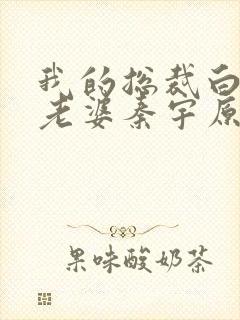 我的总裁白
老婆秦宇原
果味酸奶茶